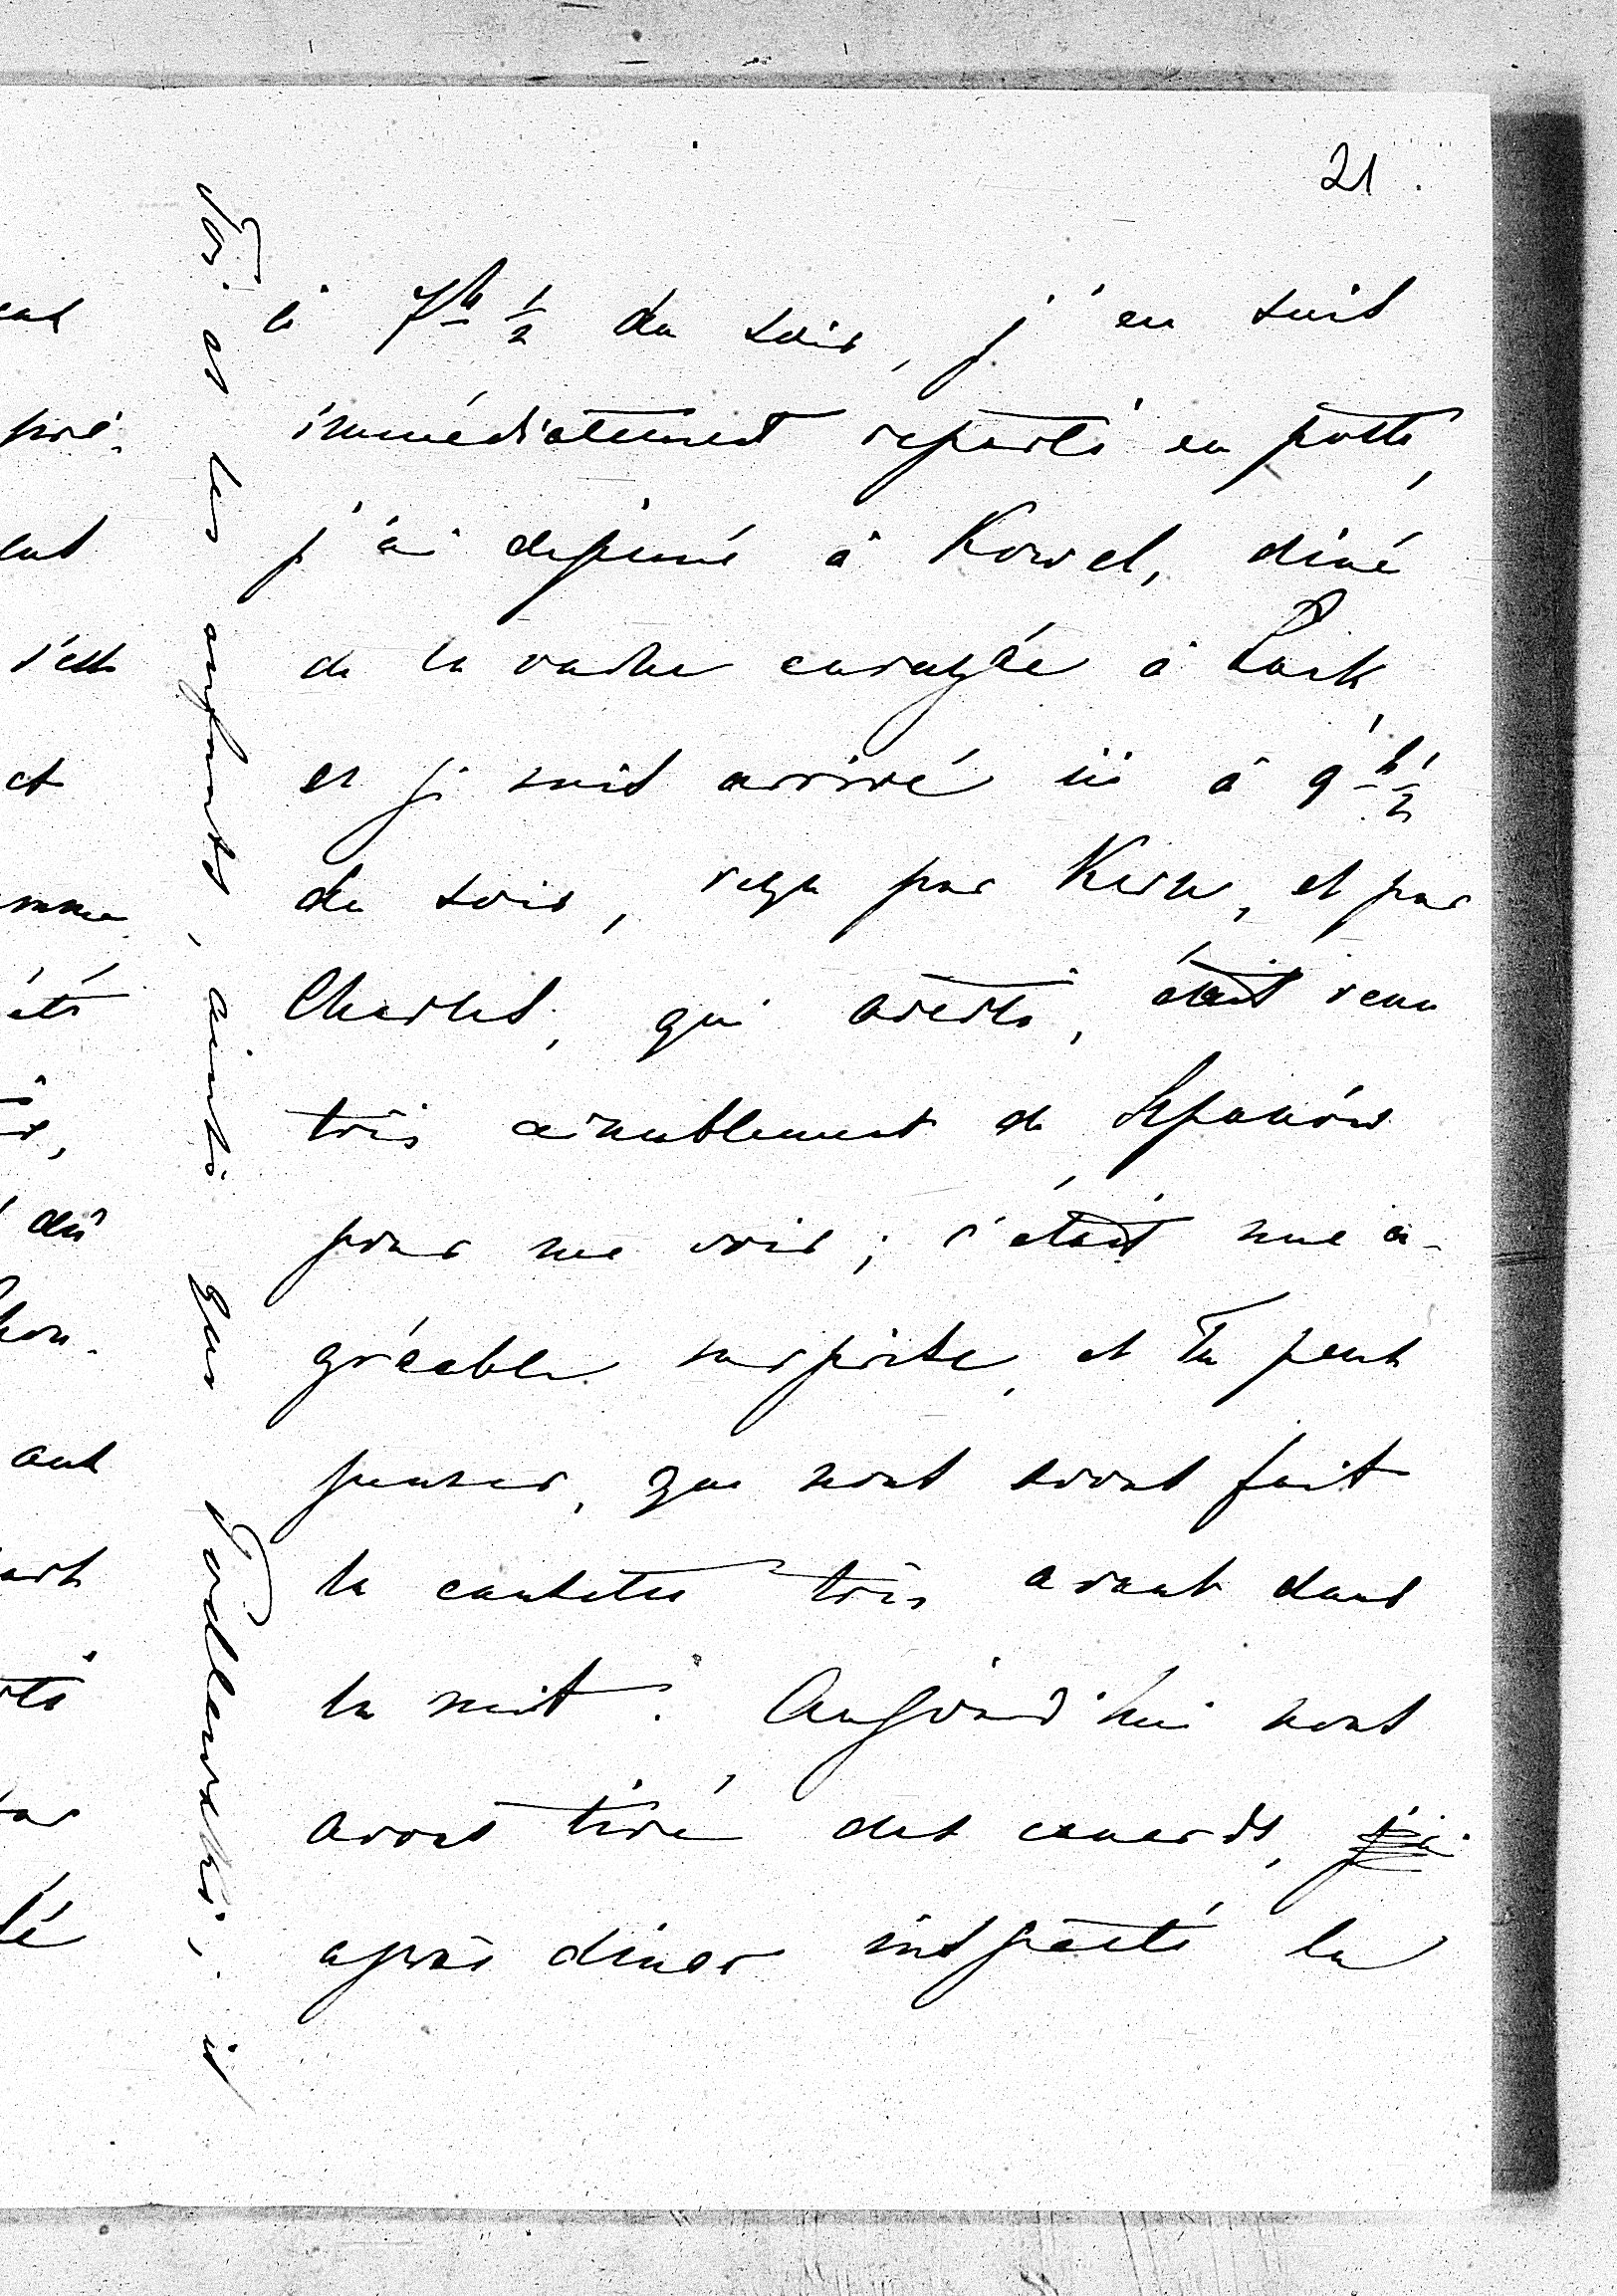 21.
à 7h 1/2 du soir, j'en suis
immédiatement reparti en poste,
j'ai dejeuné à Kowel, diné
de la vache enragée à Łuck
et je suis arrivé ici à 9 h 1/2
du soir, reçu par Kern, et par
Charles, qui averti, était venu
très aimablement de Szpanów
pour me voir; c'était une a-
gréable surprise, et Tu peux
penser, que nous avons fait
la causette très avant dans
la nuit. Aujourd'hui nous
avons tiré des canards,
après diner inspecté la
Toi et les enfants, ainsi que Podlewski; il
ent
pré-
ent
s'est
et
mme
été
dû
hon-
ant
art
rti
lé